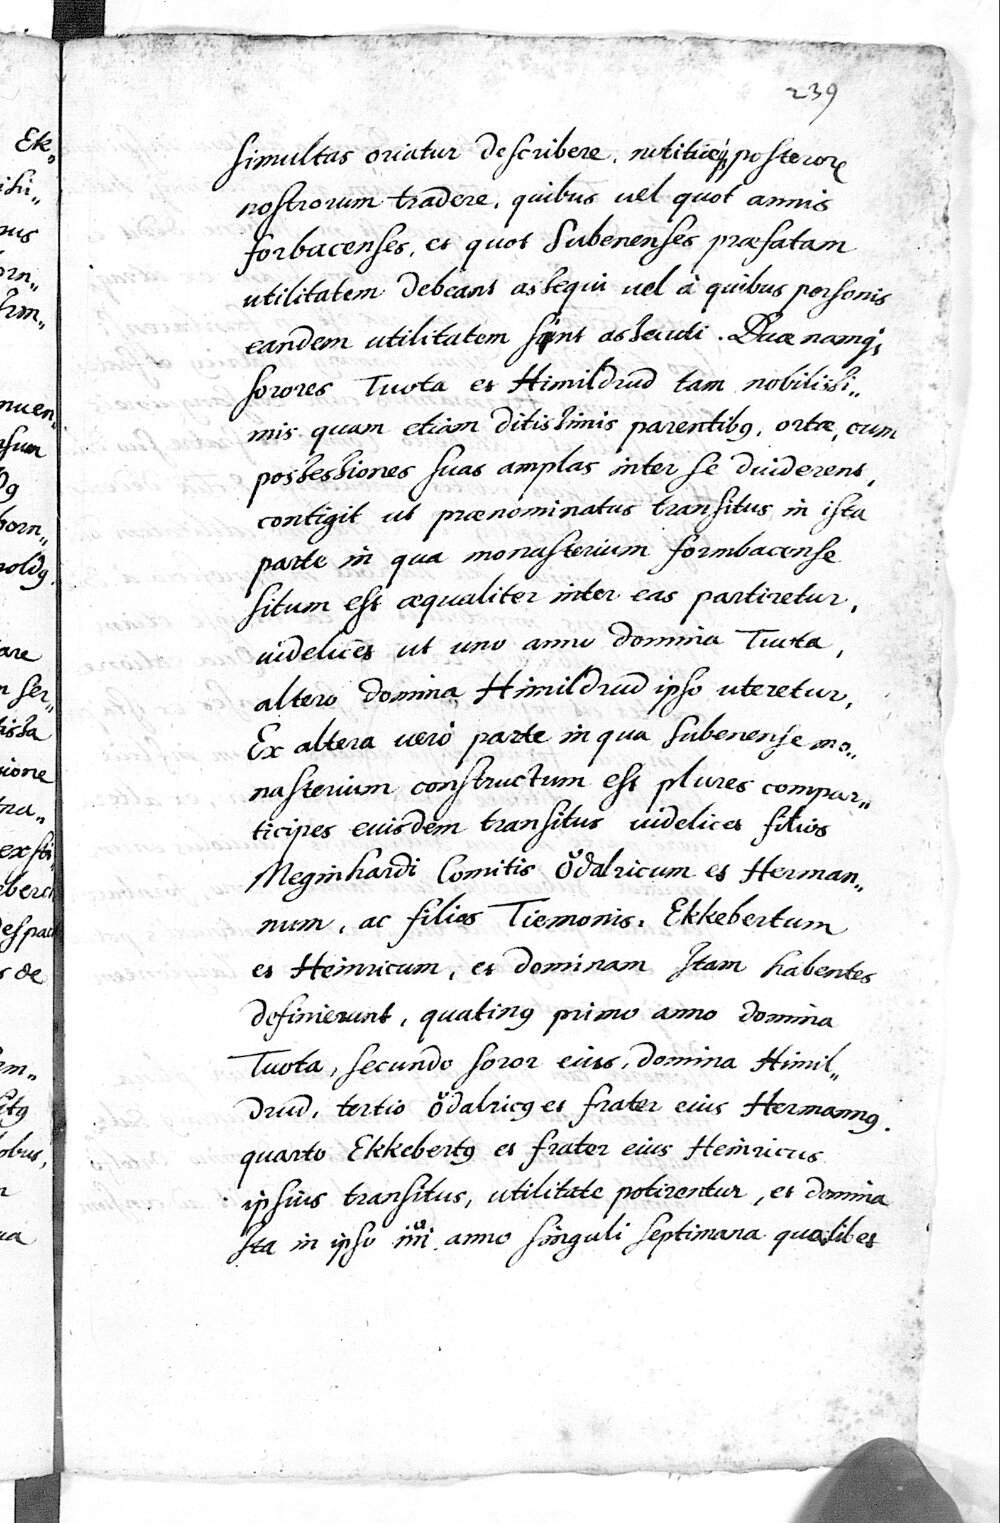 239
Ek„
simultas oriatur describere, notitieq; posteror
nostrorum tradere, quibus uel quot annis
forbacenses, et quot Subenenses præfatam
utilitatem debeant assequi uel à quibus personis
eandem utilitatem sint assecuti. Duæ namq;
sorores Tuota et Himildrud tam nobilissi„
mis quam etiam ditissimis parentibꝰ, ortæ, cum
possessiones suas amplas inter se diuiderent,
contigit ut prænominatus transitus in ista
parte in qua monasterium formbacense
situm est æqualiter inter eas partiretur,
uidelicet ut uno anno domina Tuota,
altero domina Himildrud ipso uteretur,
Ex altera uerò parte in qua Subenense mo„
nasterium constructum est plures compar„
ticipes euisdem transitus uidelicet filios
Meginhardi Comitis Ŏdalricum et Herman„
num, ac filios Tiemonis, Ekkebertum
et Heinricum, et dominam Itam habentes
definierunt, quatinꝰ primo anno domina
Tuota, secundo soror eius, domina Himil„
drud, tertio Ŏdalricꝰ et frater eius Hermannꝰ.
quarto Ekkebertꝰ et frater eius Heinricus
ipsius transitus, utilitate potirentur, et domina
Ita in ipso iiii anno singuli septimana qualibet